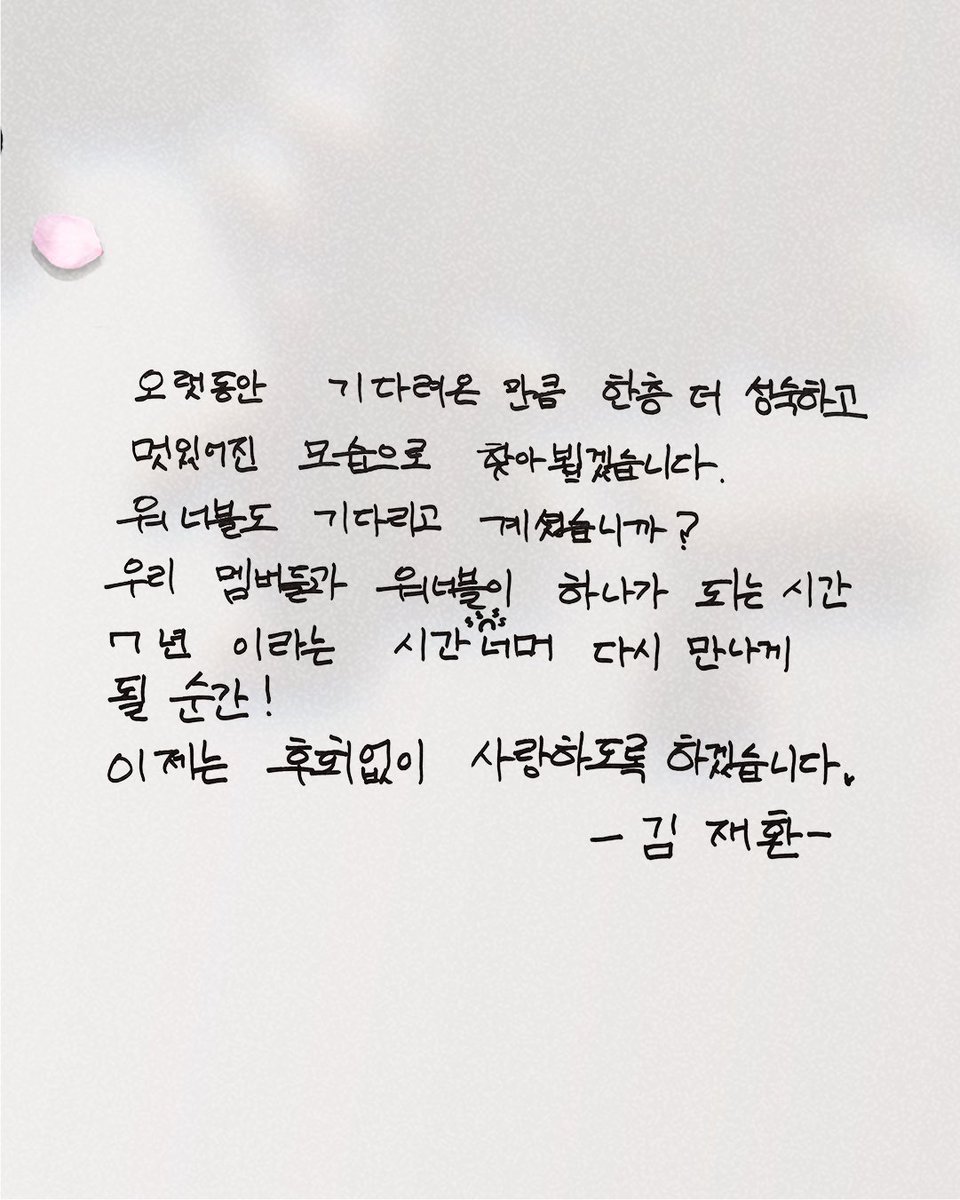 오랫동안 기다려온 만큼 한층 더 성숙하고
멋있어진 모습으로 찾아뵐겠습니다.
워너블도 기다리고 계셨습니까?
우리 멤버들과 워너블이 하나가 되는 시간
7년 이라는 시간 너머 다시 만나게
될 순간!
이제는 후회없이 사랑하도록 하겠습니다.
-김재환-